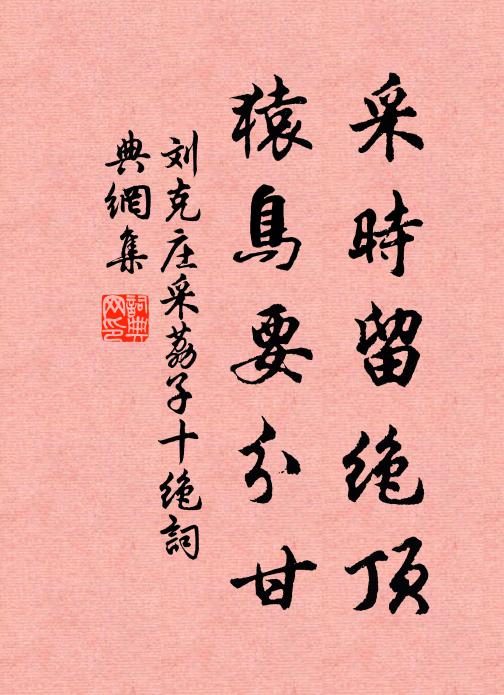 采時留绝顶
猿鳥要分甘
刘克庄采荔子十绝詞
典網集
詞典
网印